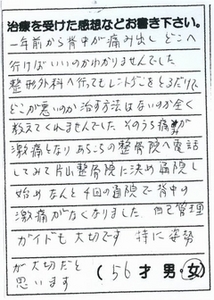 治療を受けた感想などお書き下さい。
一年前から背中が痛み出し どこへ
行けばいいのかわかりませんでした
整形外科へ行ってもレントゲンをとるだけで
どこが悪いのか治す方法はないのか全く
教えてくれませんでした。そのうち痛みが
激痛となり あちこちの整骨院へ電話
してみて片山整骨院に決め通院し
始め なんと4回の通院で背中の
激痛がなくなりました 自己管理
ガイドも大切です 特に姿勢
が大切だと
思います
(56才 男・女)